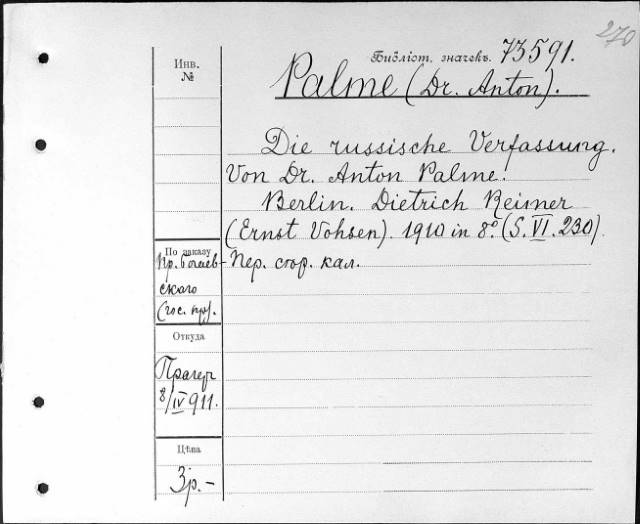 270
Библіот. значекъ. 73591.
Palme (Dr. Anton).
Инв.
№
Die russische Verfassung.
Von Dr. Anton Palme.
Berlin. Dietrich Reimer
(Ernst Vohsen). 1910 in 8º (S. VI. 230).
Пер. стор. кал.
По заказу
Пр.
скаго
(гос. пр.).
Откуда
Прагеръ
8/IV 911.
Цѣна
3р.-